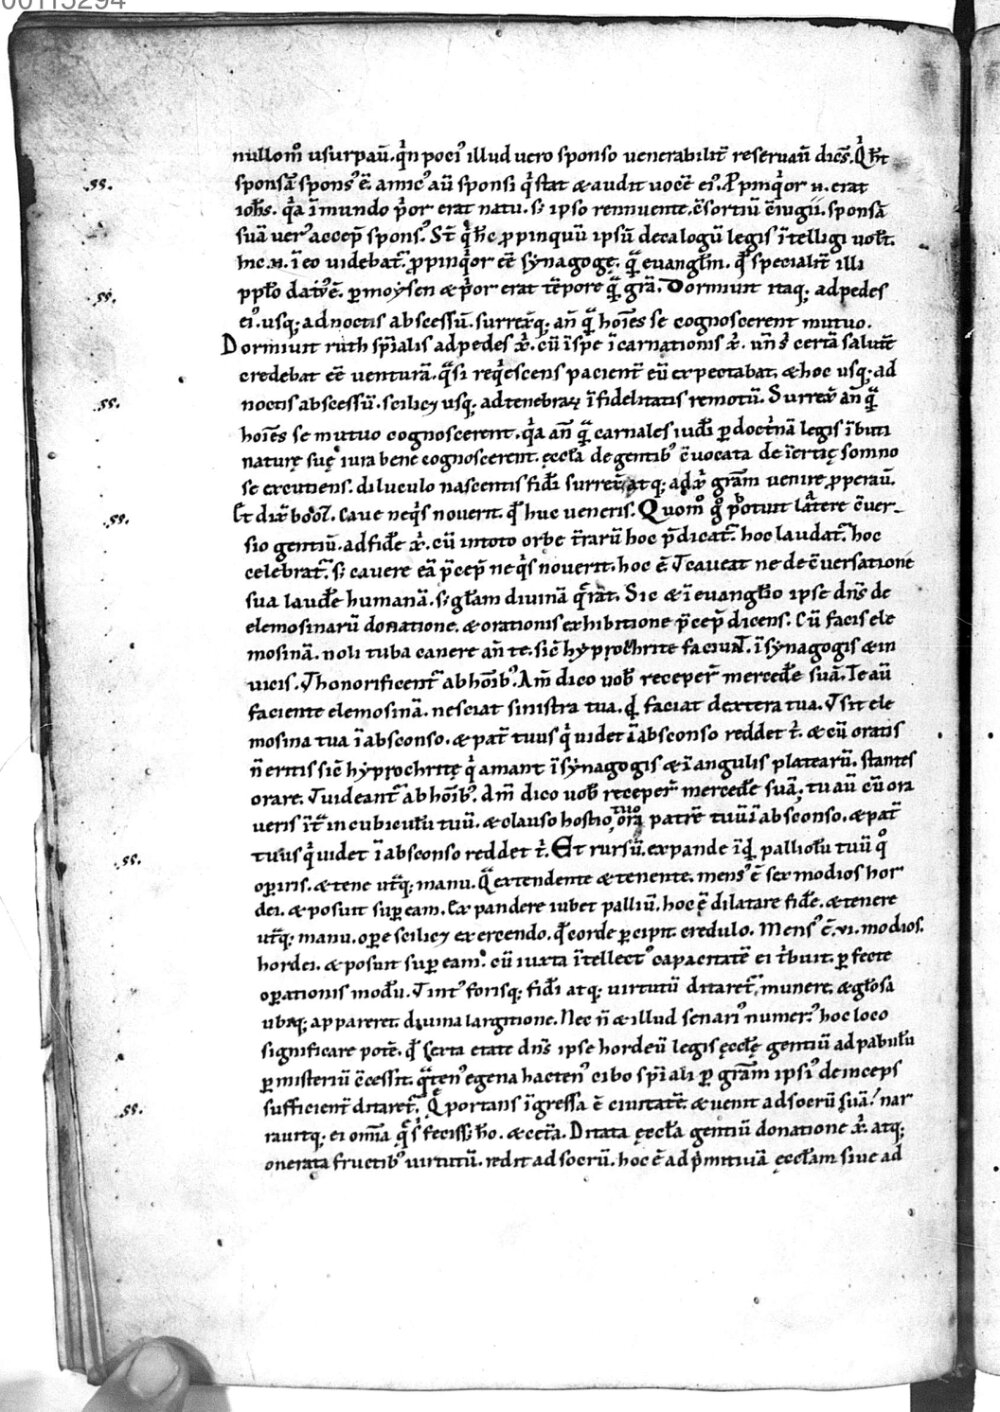 00115294
nullom̊ usurpau̅. qi̅n pocius illud uero sponso uenerabilit̅ reseruau̅ dice̅s. Qi̅ h̅t
.ss. sponsa̅ sponsus e̅. amicus au̅ sponsi qi̅ stat & audit uoce̅ eius. P̲pinqi̅or n̅. erat
ioh̅s. qi̅a i̅ mundo pi̅or erat natu. s; ipso rennuente. c̅sortiu̅ c̅iugii. sponsa̅
sua̅ uerus accep̅ sponsus. S̅t qi̅ h̅c p̲pinquu̅ ipsu̅ decalogu̅ legis i̅telligi uolt̅.
hic .n̅. i̅ eo uidebat̅ p̲pinqi̅or e̅e̅ synagogę. qa̅ euangl̅m. qd̅ specialit̅ illi
.ss. pp̅lo datus e̅. p̲ moysen & pi̅or erat te̅pore qa̅ gr̅a. Dormiuit itaq; ad pedes
eius. usq; ad noctis abscessu̅. surrexi̅tq; an̅ qa̅ ho̅i̅es se cognoscerent mutuo.
Dormiuit ruth sp̅i̅alis ad pedes x̅i̅. cu̅ i̅ spe i̅carnationis x̅i̅. un̅ s; certa̅ salute̅
credebat e̅e̅ uentura̅. qa̅si reqi̅escens pacient̅ eu̅ expectabat. & hoc usq; ad
.ss. noctis abscessu̅. scilicet usq; ad tenebraꝝ i̅fidelitatis remotu̅. Surrexi̅t an̅ qa̅
ho̅i̅es se mutuo cognoscerent. qi̅a an̅ qa̅ carnales iude̅i p̲ doctri̅na̅ legis i̅buti
naturę suę iura bene cognoscerent. eccl̅a de gentibus c̅uocata de i̅ertię somno
se excutiens. diluculo nascentis fidei̅ surrexi̅t atq; ad xi̅ gr̅am uenire p̲perau̅.
.ss. Et dix̅ booz. Caue neqi̅s nouerit. qd̅ huc ueneris. Quom̊ go̅ potuit late̅re c̅uer-
sio gentiu̅. ad fide̅ x̅i̅. cu̅ in toto orbe t̅raru̅ hoc pr̅dicat̅. hoc laudat̅. hoc
celebrat̅. s; cauere ea̅ pr̅cep̅ ne qi̅s nouerit. hoc e̅ Ut caueat ne de c̅uersatione
sua laude̅ humana̅. s; gl̅am diuina̅ qr̅at. Sic & i̅ euangl̅io ipse dn̅s de
elemosinaru̅ donatione. & orationis exhibitione pr̅cep̅ dicens. Cu̅ facis ele
mosina̅. noli tuba canere an̅ te. sic̅ hyprochrite faciunt. i̅ synagogis & in
uicis. Ut honorificent̅ ab ho̅i̅bus. Am̅ dico uob̅ receper̅ mercede̅ sua̅. Te au̅
faciente elemosina̅. nesciat sinistra tua. qd̅ faciat dextera tua. Ut sit ele
mosina tua i̅ absconso. & pat̅ tuus qi̅ uidet i̅ absconso reddet t̅i. & cu̅ oratis
n̅ eritis sic̅ hyprochritę qi̅ amant i̅ synagogis & i̅ angulis platearu̅. stantes
orare. Ut uideant̅ ab ho̅i̅bus. Am̅ dico uob̅ receper̅ mercede̅ sua̅. tu au̅ cu̅ ora
ueris i̅t̅ in cubiculu̅ tuu̅. & clauso hostio tuo ora patre̅ tuu̅ i̅ absconso. & pat̅
.ss. tuus qi̅ uidet i̅ absconso reddet t̅i. Et rursu̅. expande i̅qd̅ palliolu̅ tuu̅ qo̅
op̲iris. & tene ut̅q; manu. Qa̅ extendente & tenente. mensus e̅ sex modios hor
dei. & posuit sup̲ eam. Expandere iubet palliu̅. hoc e̅ dilatare fide̅. & tenere
ut̅q; manu. op̲e scilicet exercendo. qd̅ corde p̲cipit credulo. Mensus e̅. vi. modios.
hordei. & posuit sup̲ eam. cu̅ iuxta i̅tellectus capacitate̅ ei t̅ribuit. p̲fecte
op̲ationis modu̅. Ut intus forisq; fidei̅ atq; uirtutu̅ ditaret̅ munere. & gl̅osa
ubiq; appareret. diuina largitione. Nec n̅ & illud senarius numerus hoc loco
significare pote̅. qd̅ sexta etate dn̅s ipse hordeu̅ legis eccl̅ę gentiu̅ ad pabulu̅
p̲ misteriu̅ c̅cessit. qa̅tenus egena hactenus cibo sp̅i̅ali p̲ gr̅am ipsius deinceps
.ss. sufficient̅ ditaret̅. Quę portans i̅gressa e̅ ciuitate̅. & uenit ad socru̅ sua̅. nar
rauitq; ei om̅ia quę s; fecisset ho̅. & cet̅a. Ditata eccl̅a gentiu̅ donatione x̅i̅ atq;
onerata fructibus uirtutu̅. redit ad socru̅. hoc e̅ ad pi̅mitiua̅ eccl̅am siue ad